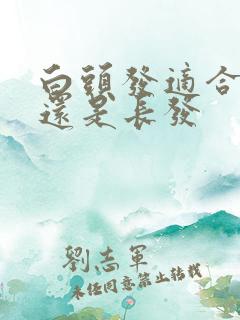 白頭發適合
還是長發
劉志軍
未經同意禁止轉載